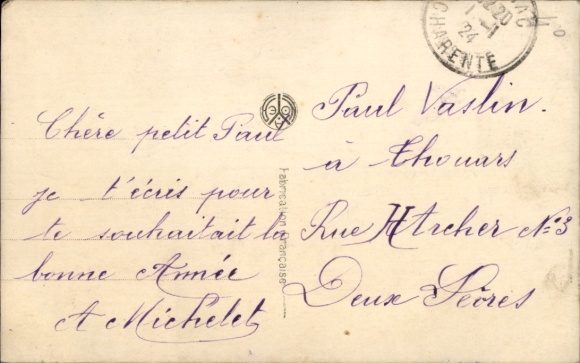 Chère petit Paul
je t'écris pour
te souhaitait la
bonne Année
A Michelet
Fabrication Française
Paul Vaslin.
à Thouars
Rue H Archer N: 3
Deux Sèvres
1 - 1
24
CHARENTE